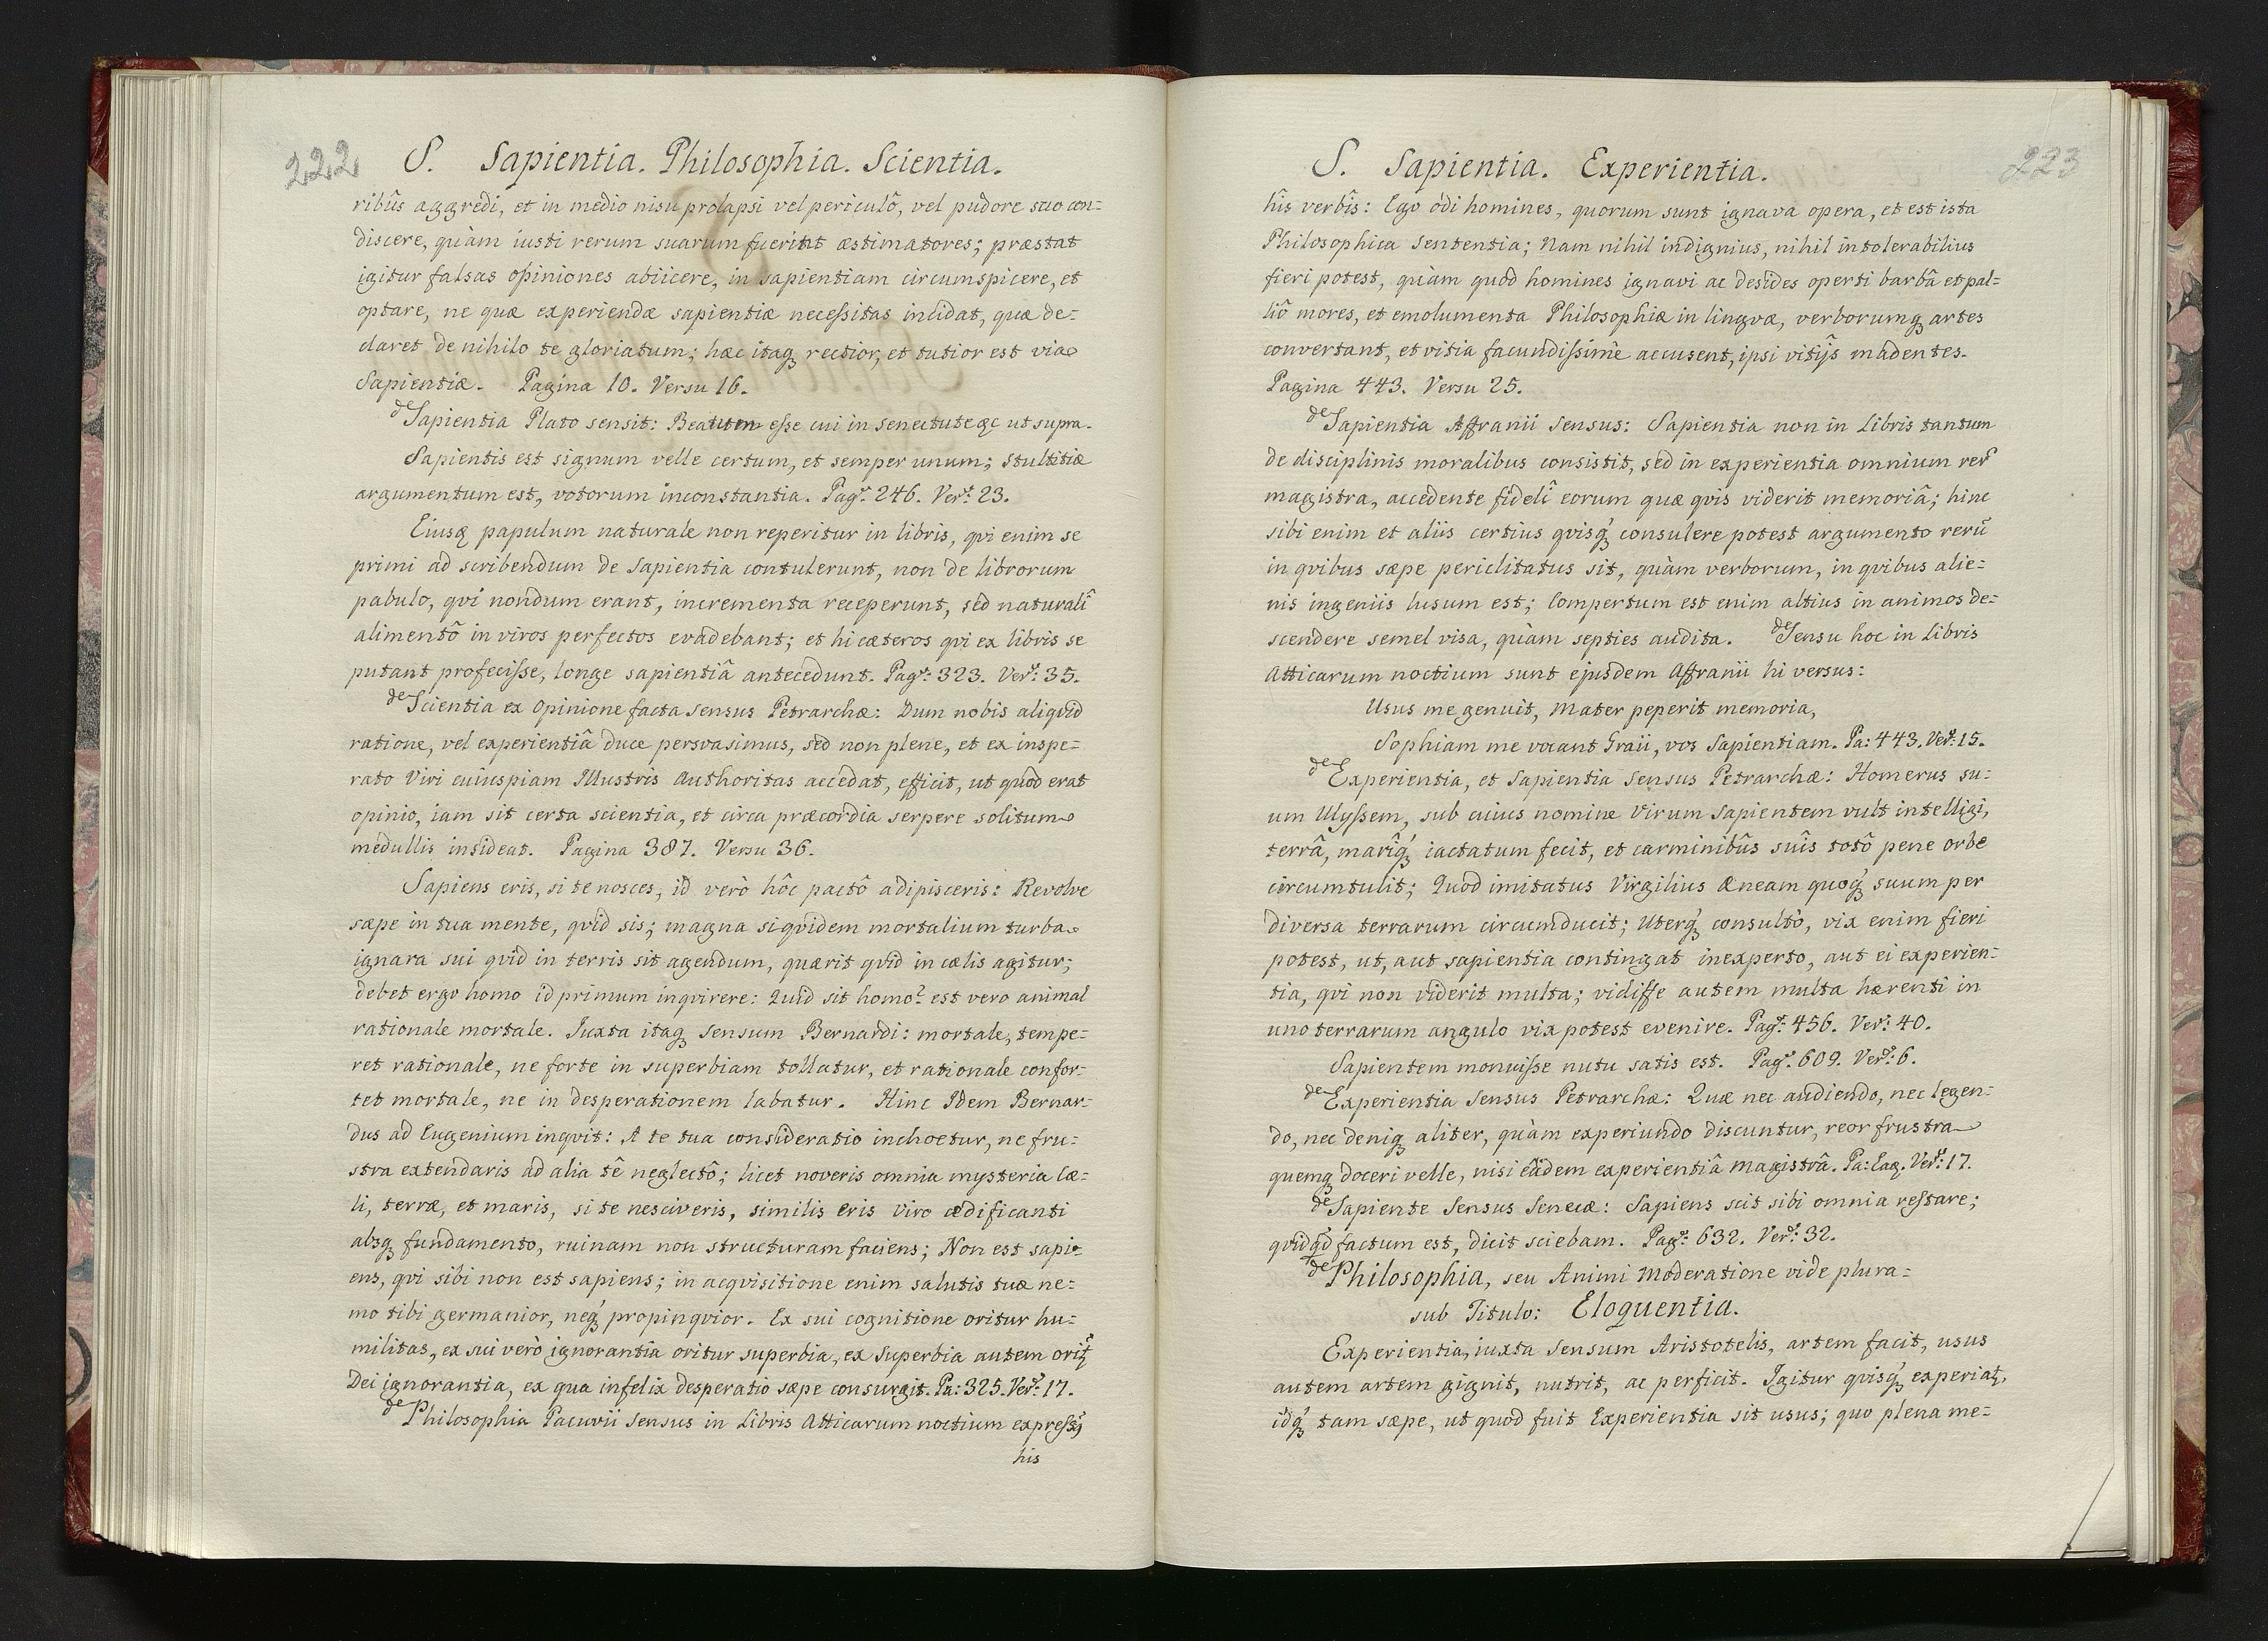 222
S. Sapientia. Philosophia. Scientia.
ribûs aggredi, et in medio nisu prolapsi vel periculô, vel pudore suo con=
discere, quàm iusti rerum suarum fuerint æstimatores; præstat
igitur falsas opiniones abiicere, in sapientiam circumspicere, et
optare, ne quæ experiendæ sapientiæ neceſsitas incidat, quæ de=
claret de nihilo te gloriatum; hæc itaq₃ rectior, et tutior est via
Sapientiæ. Pagina 10. Versu 16.
de Sapientia Plato sensit: Beatum eſse cui in senectute &c ut supra.
Sapientis est signum velle certum, et semper unum; stultitiæ
argumentum est, votorum inconstantia. Pagª: 246. Verſ: 23.
Eiusq₃ papulum naturale non reperitur in libris, qvi enim se
primi ad scribendum de Sapientia contulerunt, non de librorum
pabulo, qvi nondum erant, incrementa receperunt, sed naturalî
alimentô in viros perfectos evadebant; et hi cæteros qvi ex libris se
putant profeciſse, longe sapientiâ antecedunt. Pagª: 323. Verſ: 35.
de Scientia ex Opinione facta sensus Petrarchæ: Dum nobis aliqvid
ratione, vel experientiâ duce persvasimus, sed non plene, et ex inspe=
rato Viri cuiuspiam Illustris Authoritas accedat, efficit, ut quod erat
opinio, iam sit certa scientia, et circa præcordia serpere solitum
medullis insideat. Pagina 387. Versu 36.
Sapiens eris, si te nosces, id verò hôc pactô adipisceris: Revolve
sæpe in tua mente, qvid sis; magna siqvidem mortalium turba
ignara sui qvid in terris sit agendum, quærit qvid in cælis agitur;
debet ergo homo id primum inqvirere: Quid sit homo? est vero animal
rationale mortale. Iuxta itaq₃ sensum Bernardi: mortale, tempe=
ret rationale, ne forte in superbiam tollatur, et rationale confor=
tet mortale, ne in desperationem labatur. Hinc Idem Bernar=
dus ad Eugenium inqvit: A te tua consideratio inchoetur, ne fru=
stra extendaris ad alia tê neglectô; licet noveris omnia mysteria Cæ=
li, terræ, et maris, si te nesciveris, similis eris viro ædificanti
absq₃ fundamento, ruinam non structuram faciens; Non est sapi=
ens, qvi sibi non est sapiens; in acqvisitione enim salutis tuæ ne=
mo tibi germanior, neq₃ propinqvior. Ex sui cognitione oritur hu=
militas, ex sui verò ignorantia oritur superbia, ex superbia autem oritᷣ
Dei ignorantia, ex qua infelix desperatio sæpe consurgit. Pa: 325. Verſ: 17.
de Philosophia Pacuvii sensus in Libris Atticarum noctium expreſsꝰ
his
223
S. Sapientia. Experientia.
hîs verbîs: Ego odi homines, quorum sunt ignava opera, et est ista
Philosophica sententia; Nam nihil indignius, nihil intolerabilius
fieri potest, quàm quod homines ignavi ac desides operti barbâ et pal=
liô mores, et emolumenta Philosophiæ in lingvæ, verborumq₃ artes
convertant, et vitia facundiſsimè accusent, ipsi vitijs madentes.
Pagina 443. Versu 25.
de Sapientia Affranii Sensus: Sapientia non in Libris tantum
de disciplinis moralibus consistit, sed in experientia omnium rerͫ
magistra, accedente fidelî eorum quæ qvis viderit memoriâ; hinc
sibi enim et aliis certius qvisq₃ consulere potest argumento rerū
in qvibus sæpe periclitatus sit, quàm verborum, in qvibus alie=
nis ingeniis lusum est; Compertum est enim altius in animos de=
scendere semel visa, quàm septies audita. de Sensu hoc in Libris
Atticarum noctium sunt ejusdem Affranii hi versus:
Usus me genuit, Mater peperit memoria,
Sophiam me vocant Graii, vos Sapientiam. Pa: 443. Verſ: 15.
de Experientia, et Sapientia Sensus Petrarchæ: Homerus su=
um Ulyſsem, sub cuius nomine Virum Sapientem vult intelligi,
terrâ, marîq₃ iactatum fecit, et carminibûs suîs totô pene orbe
circumtulit; Quod imitatus Virgilius Æneam quoq₃ suum per
diversa terrarum circumducit; Uterq₃ consultò, vix enim fieri
potest, ut, aut sapientia contingat inexperto, aut ei experien=
tia, qvi non viderit multa; vidiſſe autem multa hærenti in
uno terrarum angulo vix potest evenire. Pagª: 456. Verſ: 40.
Sapientem monuiſse nutu satis est. Pagª: 609. Verſ: 6.
de Experientia Sensus Petrarchæ: Quæ nec audiendo, nec legen=
do, nec deniq₃ aliter, quàm experiundo discuntur, reor frustra
quemq₃ doceri velle, nisi eâdem experientiâ Magistrâ. Pa: Eaq₃. Verſ: 17.
de Sapiente Sensus Senecæ: Sapiens scit sibi omnia reſtare;
qvidqd factum est, dicit sciebam. Pagª: 632. Verſ: 32.
de Philosophia, seu Animi Moderatione vide plura=
sub Titulo: Eloquentia.
Experientia, iuxta sensum Aristotelis, artem facit, usus
autem artem gignit, nutrit, ac perficit. Igitur qvisq₃ experiatᷣ,
idq₃ tam sæpe, ut quod fuit Experientia sit usus; quo plena me=